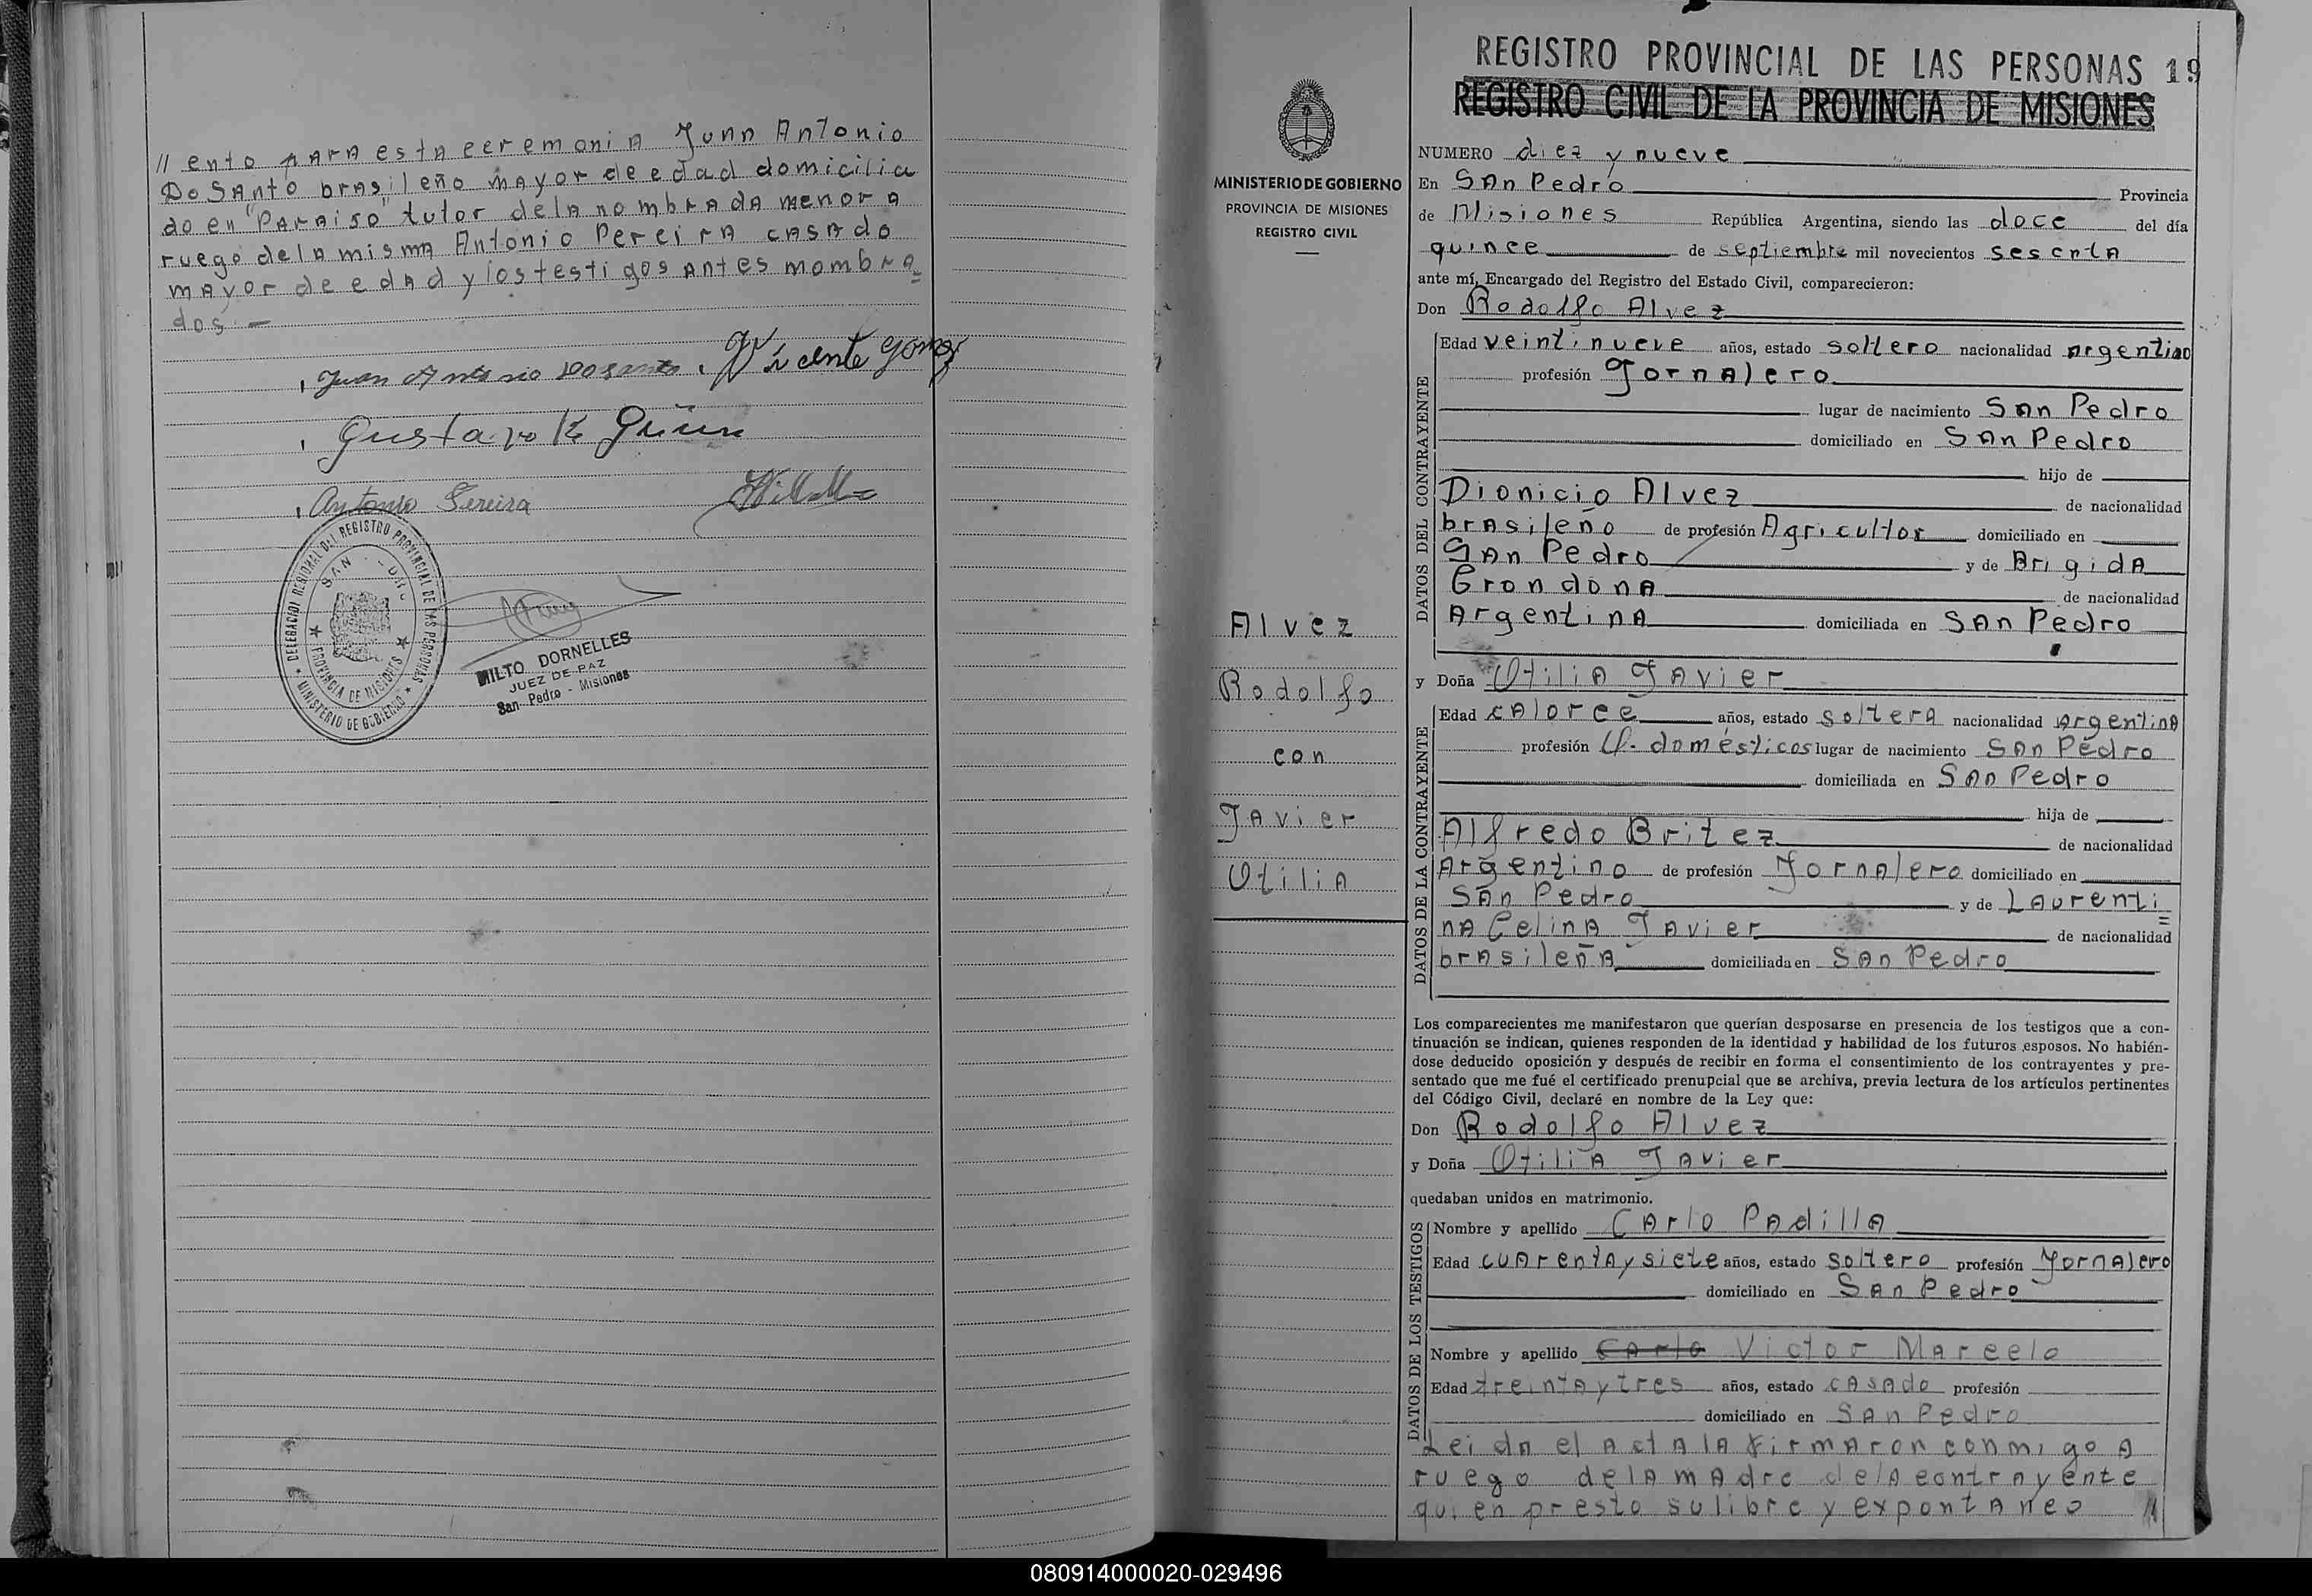 // ento para esta ceremonia Juan Antonio
DoSanto brasileño mayor de edad domicilia
do en "Paraiso" tutor dela nombrada menor a
ruego dela misma Antonio Pereira casado
mayor de edad y los testigos antes mombra=
dos.—
Juan Antonio Dosanto
Vicente Gomez
Gustavo K
Antonio Pereira
DELEGACION REGIONAL DEL REGISTRO PROVINCIAL DE LAS PERSONAS
SAN
PROVINCIA DE MISIONES
MINISTERIO DE GOBIERNO
MILTO DORNELLES
JUEZ DE PAZ
San Pedro - Misiones
MINISTERIO DE GOBIERNO
PROVINCIA DE MISIONES
REGISTRO CIVIL
Alvez
Rodolfo
con
Javier
Otilia
REGISTRO PROVINCIAL DE LAS PERSONAS 19
REGISTRO CIVIL DE LA PROVINCIA DE MISIONES
NUMERO diez y nueve
En San Pedro Provincia
de Misiones República Argentina, siendo las doce del día
quince de septiembre mil novecientos sesenta
ante mí, Encargado del Registro del Estado Civil, comparecieron:
Don Rodolfo Alvez
DATOS DEL CONTRAYENTE
Edad veintinueve años, estado soltero nacionalidad argentino
profesión Jornalero
lugar de nacimiento San Pedro
domiciliado en San Pedro
hijo de
Dionicio Alvez de nacionalidad
brasileño de profesión Agricultor domiciliado en
San Pedro y de Brigida
Grondona de nacionalidad
Argentina domiciliada en San Pedro
y Doña Otilia Javier
DATOS DE LA CONTRAYENTE
Edad catorce años, estado soltera nacionalidad argentina
profesión Q. domésticos lugar de nacimiento San Pedro
domiciliada en San Pedro
hija de
Alfredo Britez de nacionalidad
Argentino de profesión Jornalero domiciliado en
San Pedro y de Laurenti=
na Celina Javier de nacionalidad
brasileña domiciliada en San Pedro
Los comparecientes me manifestaron que querían desposarse en presencia de los testigos que a con-
tinuación se indican, quienes responden de la identidad y habilidad de los futuros esposos. No habién-
dose deducido oposición y después de recibir en forma el consentimiento de los contrayentes y pre-
sentado que me fué el certificado prenupcial que se archiva, previa lectura de los artículos pertinentes
del Código Civil, declaré en nombre de la Ley que:
Don Rodolfo Alvez
y Doña Otilia Javier
quedaban unidos en matrimonio.
DATOS DE LOS TESTIGOS
Nombre y apellido Carlo Padilla
Edad cuarenta y siete años, estado soltero profesión Jornalero
domiciliado en San Pedro
Nombre y apellido Carlo Victor Marcelo
Edad treinta y tres años, estado casado profesión
domiciliado en San Pedro
Leida el acta la firmaron conmigo a
ruego dela madre dela contrayente
quien presto su libre y expontaneo //
080914000020-029496